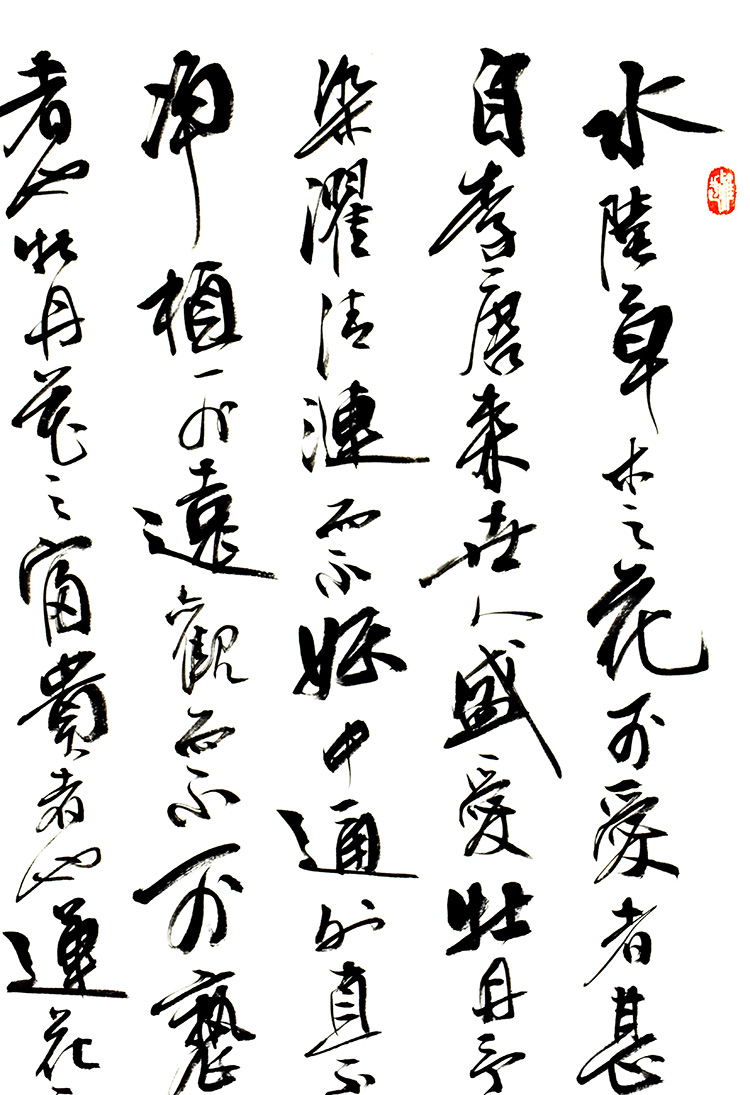 水陸草木之花可愛者甚
自李唐来世人盛愛牡丹予
染濯清漣而不妖中通外直不
净植可遠觀而不可褻
者也牡丹花之富貴者也蓮花